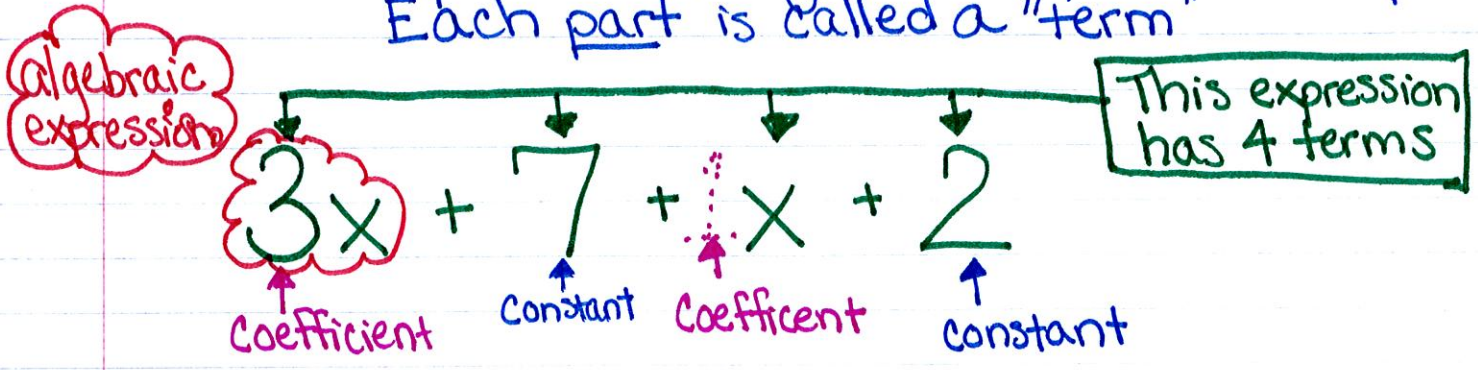 Each part is called a "term"
algebraic
expression
This expression
has 4 terms
3x + 7 + 1x + 2
Coefficient
Constant
Coefficent
constant